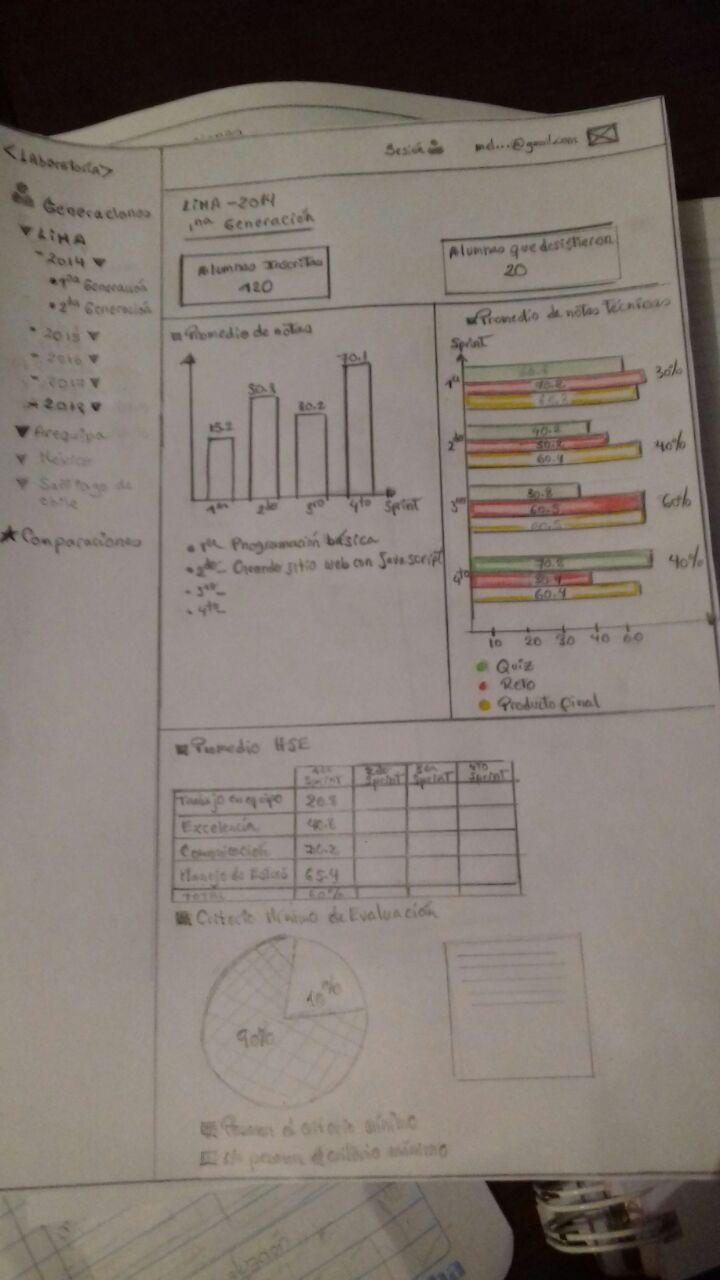 <Laboratoria>
Sesión
mel...@gmail.com
Generaciones
LIMA
2014
1ra Generación
2da Generación
2015
2016
2017
2018
Arequipa
México
Santiago de
chile
Comparaciones
LIMA - 2014
1na Generación
Alumnas Inscritas
120
Alumnas que desistieron
20
Promedio de notas
70.1
50.1
30.2
15.2
1ra 2do 3ro 4to Sprint
1ra Programación básica
2do- Creando sitio web con Javascript
3ro-
4to-
Promedio de notas técnicas
Sprint
1ra
30%
2do
40.2
50.2
60.4
40%
3ro
30.8
60.5
60.5
60%
4to
70.8
30.4
60.4
40%
10 20 30 40 60
Quiz
Reto
Producto final
Promedio HSE
1er Sprint 2do Sprint 3er Sprint 4to Sprint
Trabajo en equipo 20.8
Excelencia 40.8
Comunicación 70.2
Manejo de Estrés 65.4
TOTAL 60%
Criterio Mínimo de Evaluación
10%
90%
Pasaron el criterio mínimo
No pasaron el criterio mínimo